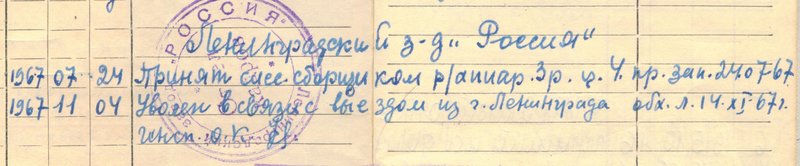 Ленинградский з-д „Россия“
1967 07 24 Принят слес. сборщиком р/аппар. 3р. ц. 4. пр. зап. 24 07-67
1967 11 04 Уволен в связи с выездом из г. Ленинграда обх. л. 14. XI-67г.
о.к.
"РОССИЯ"